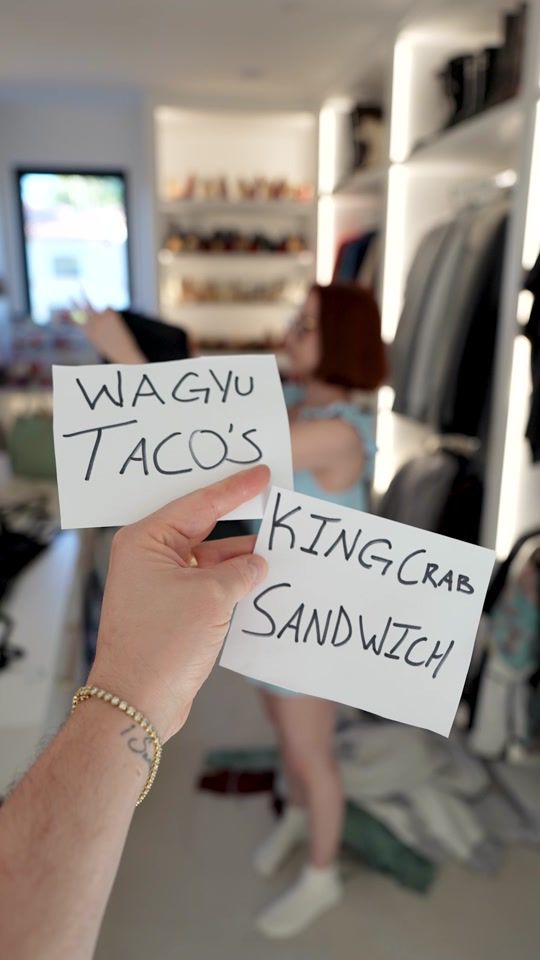 WAGYU
TACO'S
KING CRAB
SANDWICH